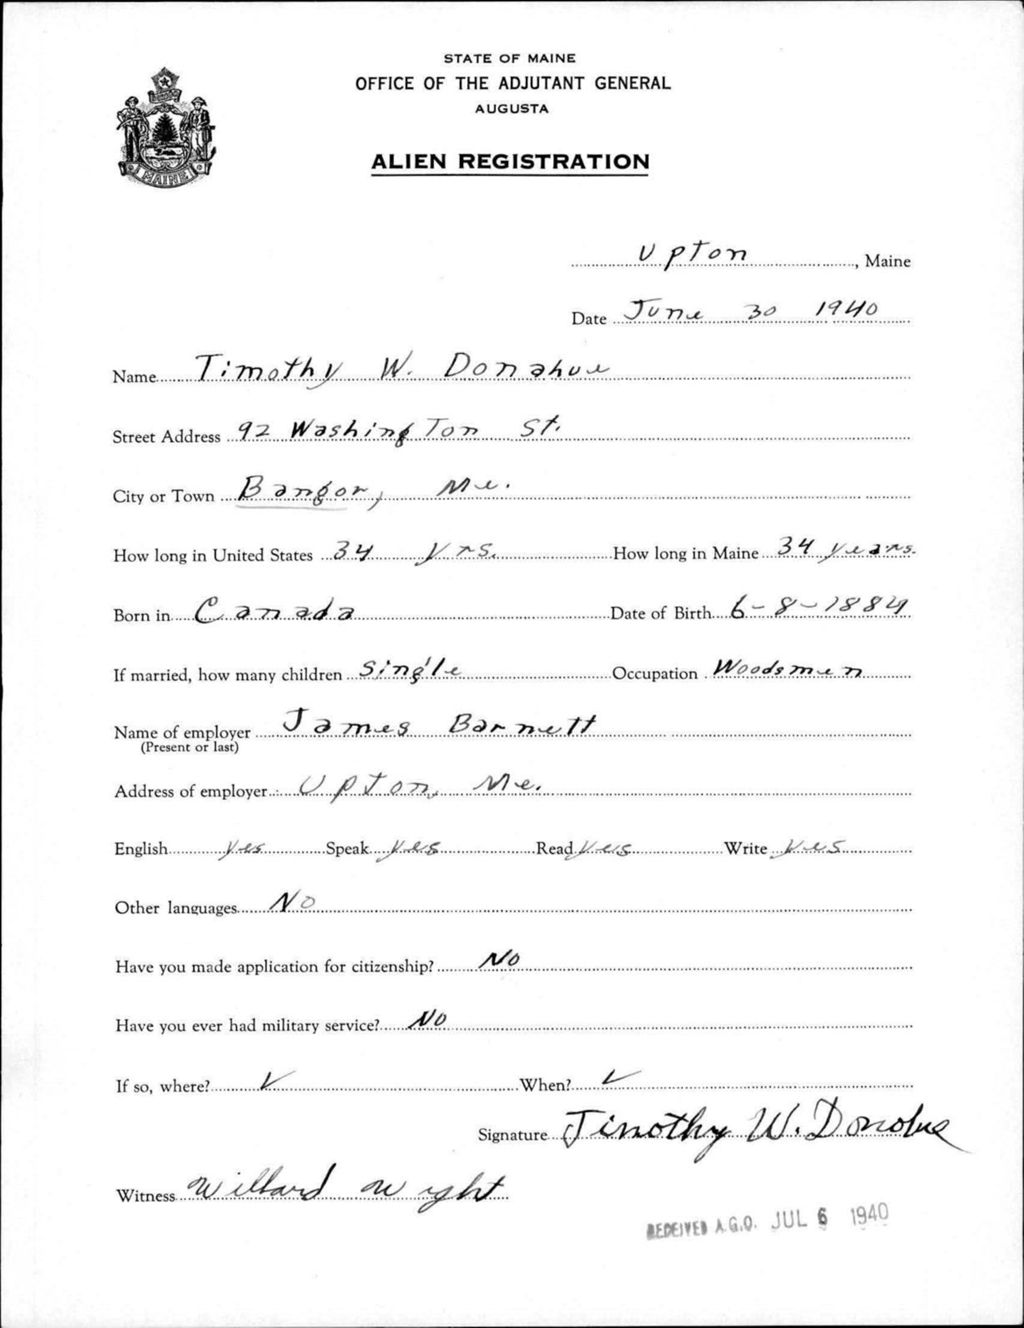 STATE OF MAINE
OFFICE OF THE ADJUTANT GENERAL
AUGUSTA
ALIEN REGISTRATION
MAINE
Upton, Maine
Date June 30 1940
Name Timothy W. Donahue
Street Address 92 Washington St.
City or Town Bangor, Me.
How long in United States 34 yrs. How long in Maine 34 years.
Born in Canada Date of Birth 6-8-1884
If married, how many children Single Occupation Woodsmen
Name of employer James Barnett
(Present or last)
Address of employer Upton, Me.
English yes Speak yes Read yes Write yes
Other languages No
Have you made application for citizenship? No
Have you ever had military service? No
If so, where? ✓ When? ✓
Signature Timothy W. Donohue
Witness Willard Wight
RECEIVED A.G.O. JUL 6 1940